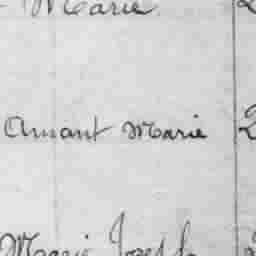 Marie 2
Amant Marie 2
Marie Joseph 2